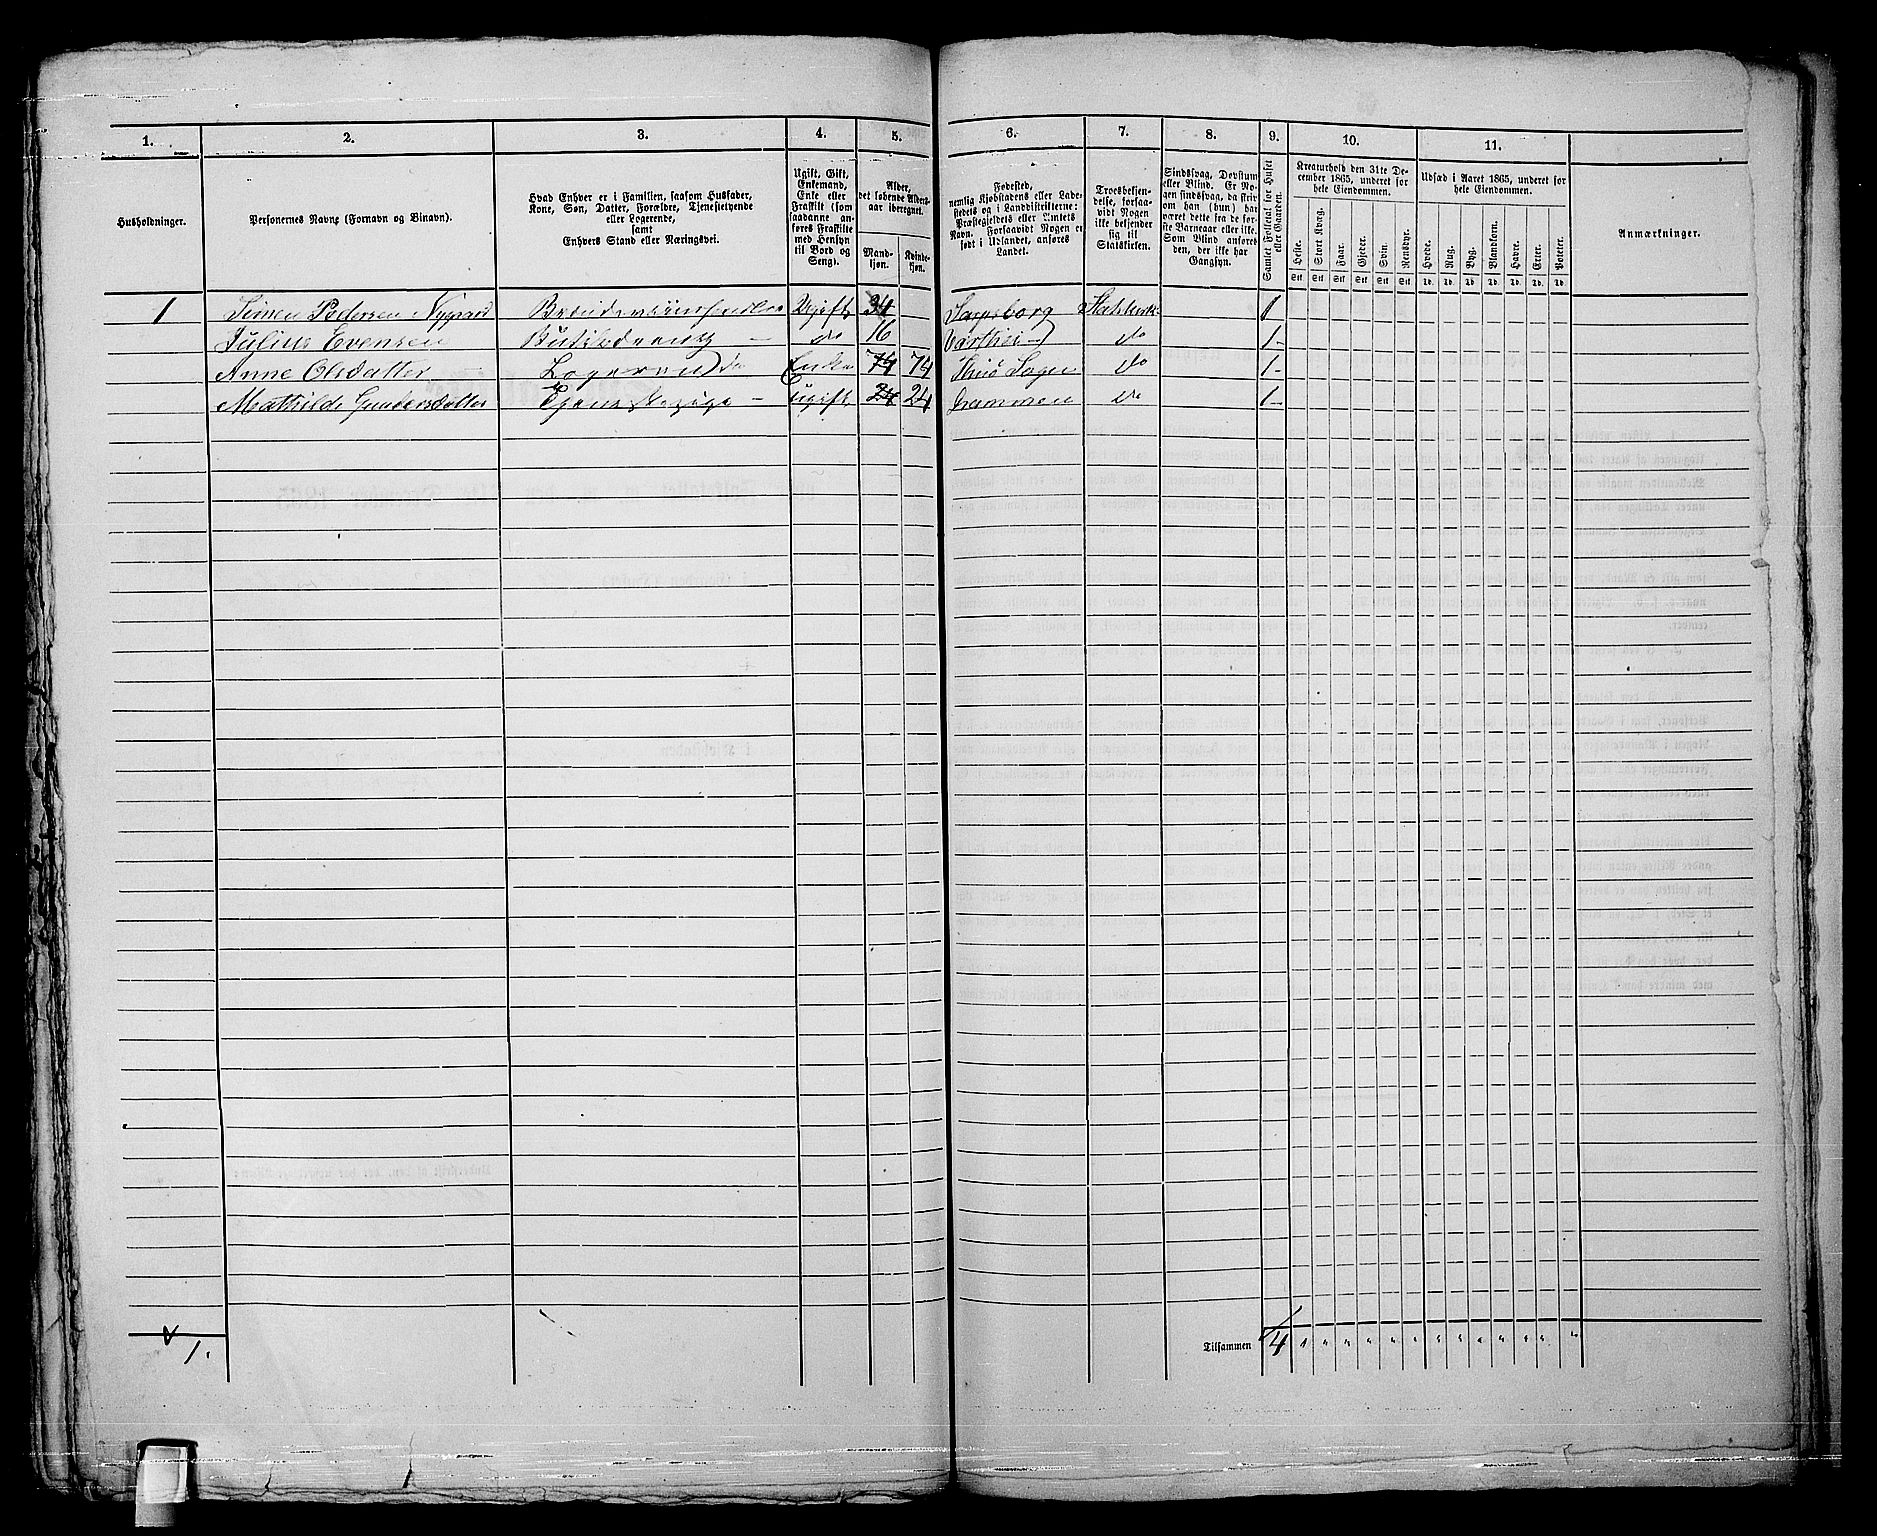 1. 2. 3. 4. 5. 6. 7. 8. 9. 10. 11.
Husholdninger.
Personernes Navne (Fornavn og Binavn).
Hvad Enhver er i Familien, saasom Husfader,
Kone, Søn, Datter, Forældre, Tjenestetyende
eller Logerende,
samt
Enhvers Stand eller Næringsvei.
Ugift, Gift,
Enkemand,
Enke eller
Fraskilt (som
saadanne an-
føres Fraskilte
med Hensyn
til Bord og
Seng).
Alder,
det løbende Alders-
aar iberegnet.
Mand-
kjøn.
Kvinde-
kjøn.
Fødested,
nemlig Kjøbstadens eller Lade-
stedets og i Landdistrikterne:
Præstegjeldets eller Amtets
Navn. Forsaavidt Nogen er
født i Udlandet, anføres
Landet.
Troesbekjen-
delse, forsaa-
vidt Nogen
ikke bekjender
sig til
Statskirken.
Sindssvag, Døvstum
eller Blind. Er No-
gen sindssvag, da skriv
om han (hun) har
været dette fra de før-
ste Barneaar eller ikke.
Som Blind anføres
den, der ikke har
Gangsyn.
Samlet Folketal for Huset
eller Gaarden.
Kreaturhold den 31te De-
cember 1865, underet for
hele Eiendommen.
Heste. Stort Kvæg. Faar. Gjeder. Svin. Rensdyr.
Stk Stk Stk Stk Stk Stk
Udsæd i Aaret 1865, underet for
hele Eiendommen.
Hvede. Rug. Byg. Blandkorn. Havre. Erter. Poteter.
Td. Td. Td Td. Td. Td. Td.
Anmærkninger.
1 Simen Pedersen Nygaard Brændeviinshandler Ugift 34 Sarpsborg Statskirk 1
Julius Evensen Butikdreng – do 16 do 1
Anne Olsdatter Logerende Enke 74 74 do 1
Mathilde Gundersdatter Tjenestepige – Ugift 24 24 Drammen do 1
1. Tilsammen 4